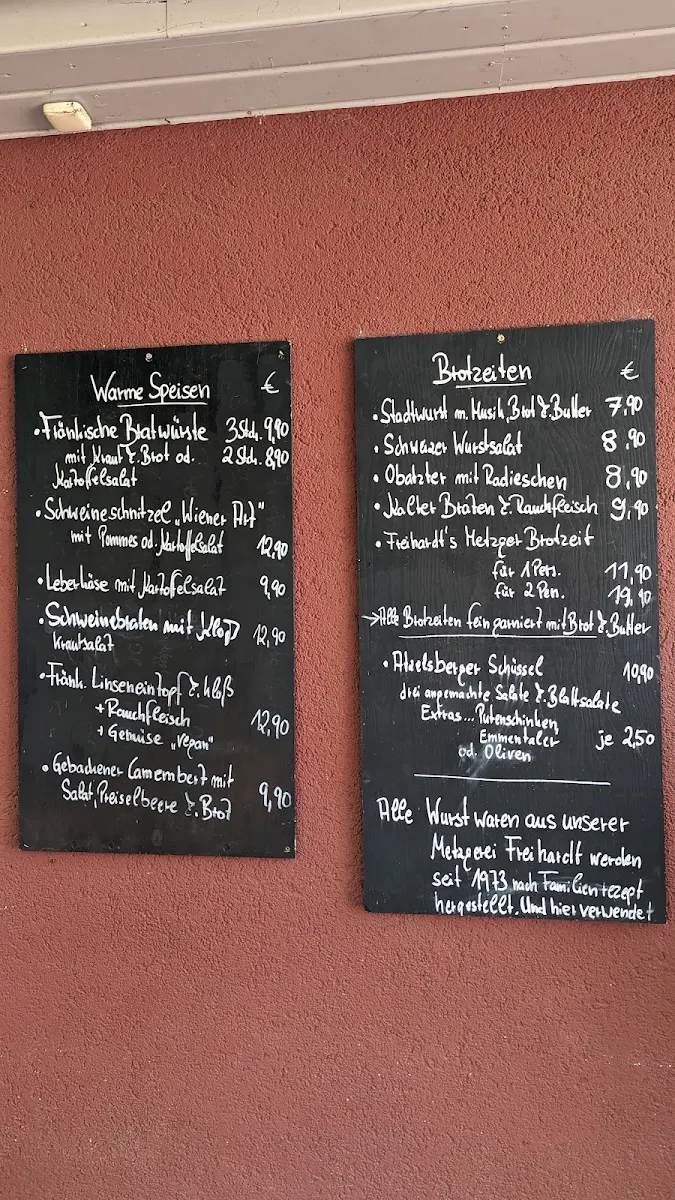 Warme Speisen €
• Fränkische Bratwürste 3 Stck. 9,90
mit Kraut & Brot od. 2 Stck. 8,90
Kartoffelsalat
• Schweineschnitzel „Wiener Art"
mit Pommes od. Kartoffelsalat 12,90
• Leberkäse mit Kartoffelsalat 9,90
• Schweinebraten mit Kloß 12,90
Krautsalat
• Fränk. Linseneintopf & Kloß
+ Rauchfleisch 12,90
+ Gemüse „vegan"
• Gebackener Camembert mit
Salat, Preiselbeere & Brot 9,90
Brotzeiten €
• Stadtwurst m. Musik, Brot & Butter 7,90
• Schweizer Wurstsalat 8,90
• Obatzter mit Radieschen 8,90
• Kalter Braten & Rauchfleisch 9,90
• Freihardt's Metzger Brotzeit
für 1 Pers. 11,90
für 2 Pers. 19,90
→ Alle Brotzeiten fein garniert mit Brot & Butter
• Atzelsberger Schüssel 10,90
drei angemachte Salate & Blattsalate
Extras... Putenschinken,
Emmentaler je 2,50
od. Oliven
Alle Wurstwaren aus unserer
Metzgerei Freihardt werden
seit 1973 nach Familienrezept
hergestellt. Und hier verwendet